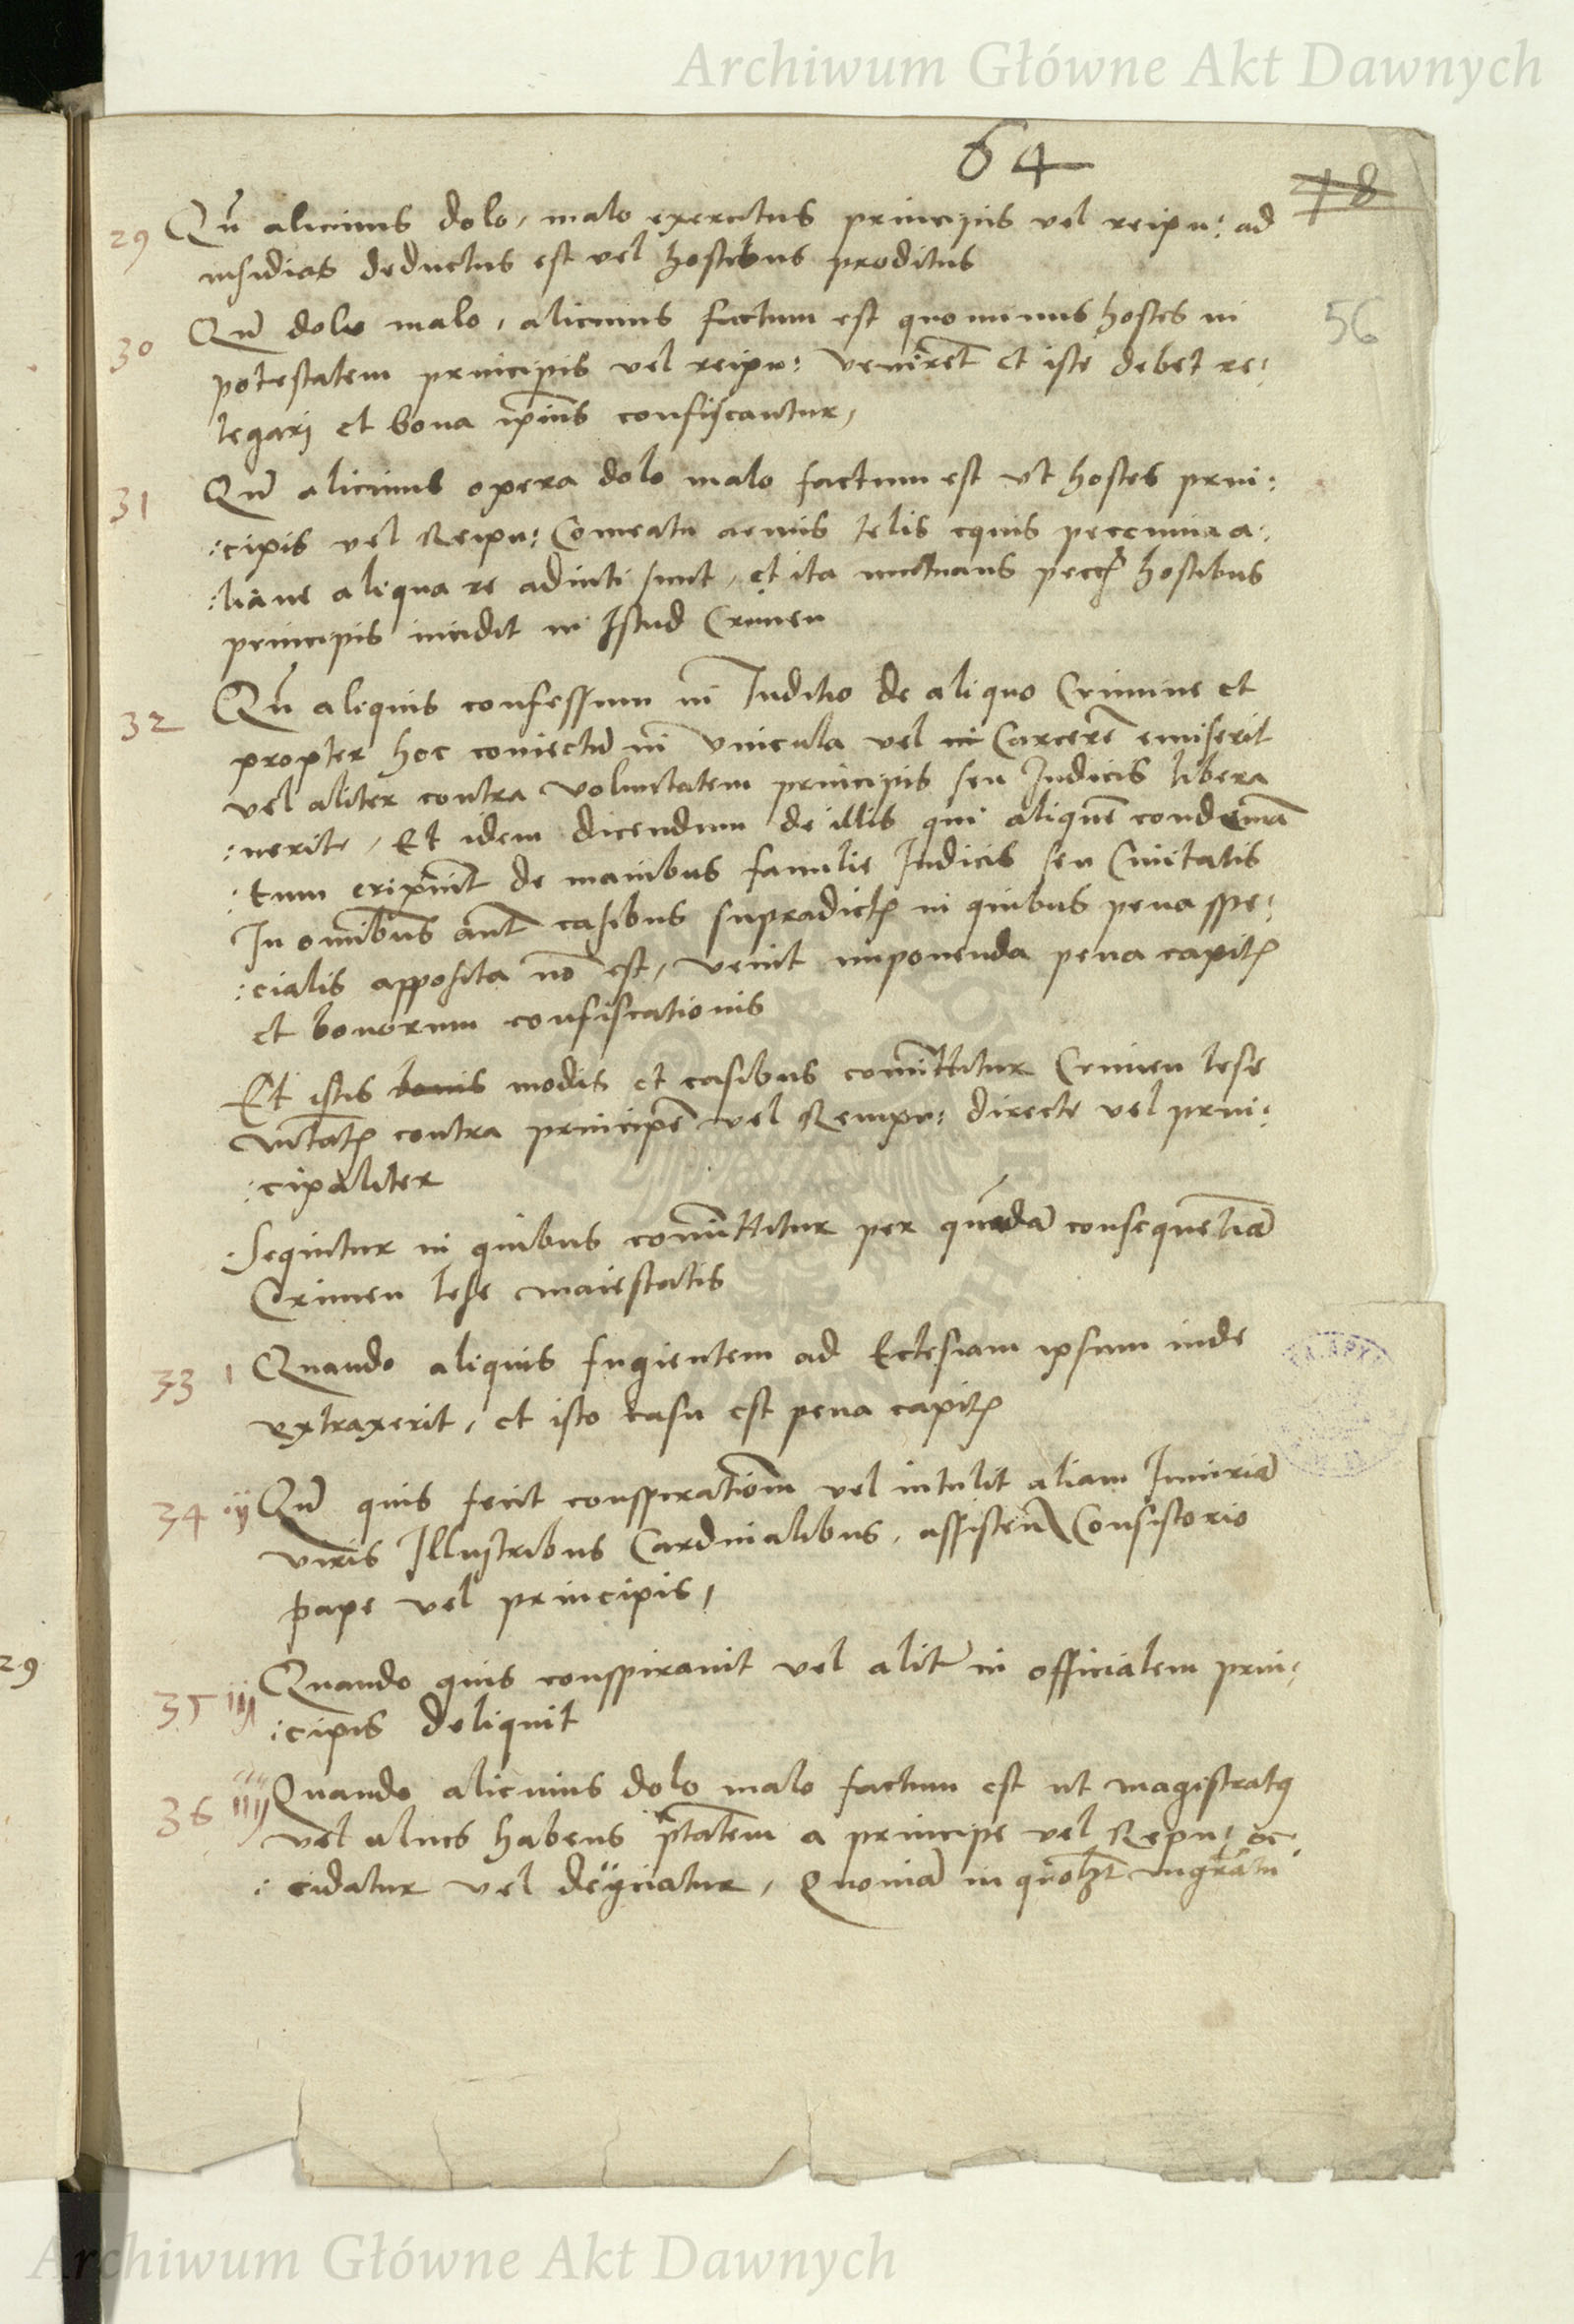 Archiwum Główne Akt Dawnych
64
18
29 Qn̄ alicuius dolo, malo exercitus principis vel reipu: ad
insidias deductus est vel hostibus proditus
56
30 Qn̄ dolo malo, alicuius factum est quominus hostes in
potestatem principis vel reipu: venirēt et iste debet re:
legari et bona ip̄ius confiscantur,
31 Qn̄ alicuius opera dolo malo factum est vt hostes prin:
:cipis vel Reipu: Comeatu armis telis equis peccunia a:
:liave aliqua re adiuti sunt, et ita mutuans hostibus
principis incidit in Istud Crimen
32 Qn̄ aliquis confessum in Juditio de aliquo Crimine et
propter hoc coniectū in vincula vel in Carcerē emiserit
vel aliter contra voluntatem principis seu Judicis libera
:verit, Et idem dicendum de illis qui aliquē condemnā
:tum eripiunt de manibus familie Judicis seu Civitatis
In om̄ibus aūt casibus supradictis in quibus pena spe:
:cialis apposita nō est, venit imponenda pena capitis
et bonorum confiscationis
Et istis bonis modis et casibus com̄ittitur Crimen lese
contra principē vel Rempu: directe vel prin:
:cipaliter
Sequitur in quibus com̄ittitur per quādā consequētiā
Crimen lese maiestatis
33 1 Quando aliquis fugientem ad Ecclesiam ipsum inde
extraxerit, et isto casu est pena capitis
34 ij Qn̄ quis fecit conspirationē vel intulit aliam Iniuriā
viris Illustribus Cardinalibus, assisten̄ Consistorio
pape vel principis,
29
35 iij Quando quis conspiravit vel alit̄ in officialem prin:
:cipis deliquit
36 iiij Quando alicuius dolo malo factum est ut magistratus
vel alius habens p̄tatem a principe vel Repu: oc:
:cidatur vel deijciatur, Quoniā in
Archiwum Główne Akt Dawnych